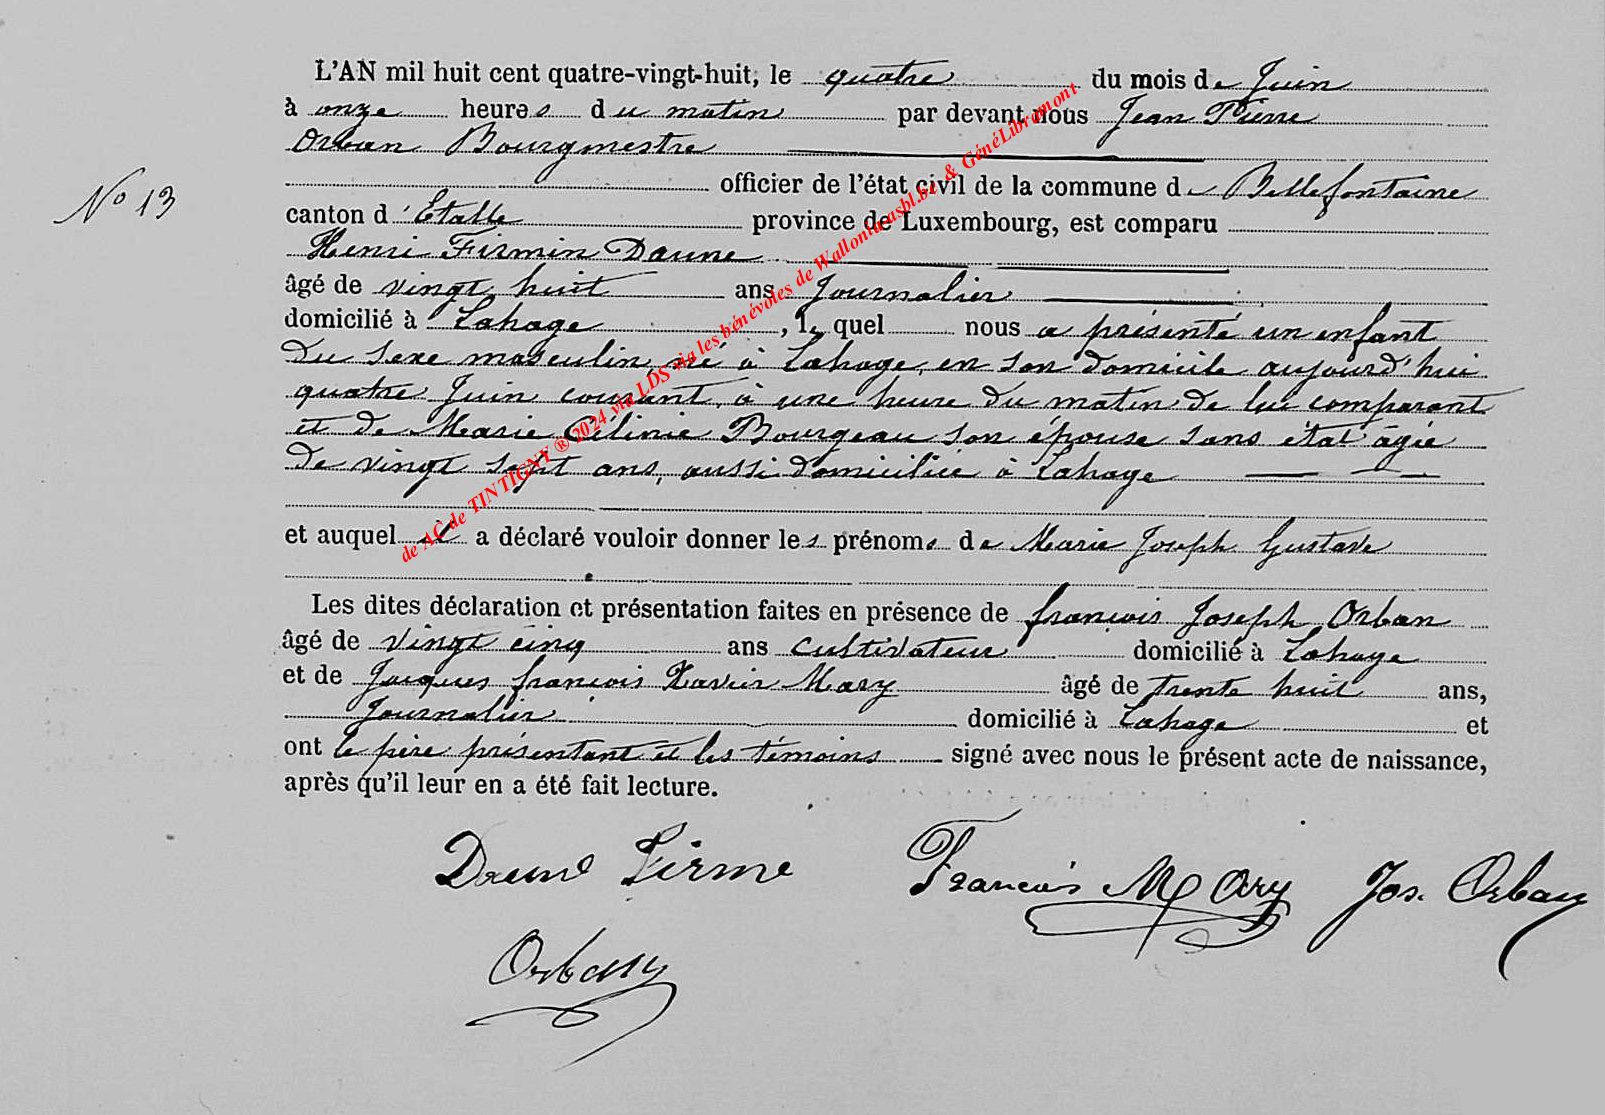 L'AN mil huit cent quatre-vingt-huit, le quatre du mois de Juin
à onze heures du matin par devant nous Jean Pierre
Orban Bourgmestre
N° 13
officier de l'état civil de la commune de Bellefontaine
canton d'Etalle province de Luxembourg, est comparu
Henri Firmin Daune
âgé de vingt huit ans Journalier
domicilié à Lahage, lequel nous a présenté un enfant
du sexe masculin, né à Lahage, en son domicile aujourd'hui
quatre Juin courant, à une heure du matin de lui comparant
et de Marie Célinie Bourgeau son épouse sans état âgée
de vingt sept ans, aussi domiciliée à Lahage
et auquel il a déclaré vouloir donner les prénoms de Marie Joseph Gustave
Les dites déclaration et présentation faites en présence de françois Joseph Orban
âgé de vingt cinq ans cultivateur domicilié à Lahage
et de Jacques françois Xavier Mary âgé de trente huit ans,
Journalier domicilié à Lahage et
ont le père présentant et les témoins signé avec nous le présent acte de naissance,
après qu'il leur en a été fait lecture.
Daune Firme François Mary Jos. Orban
Orban
de AC de TINTIGNY ® 2024 via LDS via les bénévoles de Wallonia asbl.be & GénéLibramont